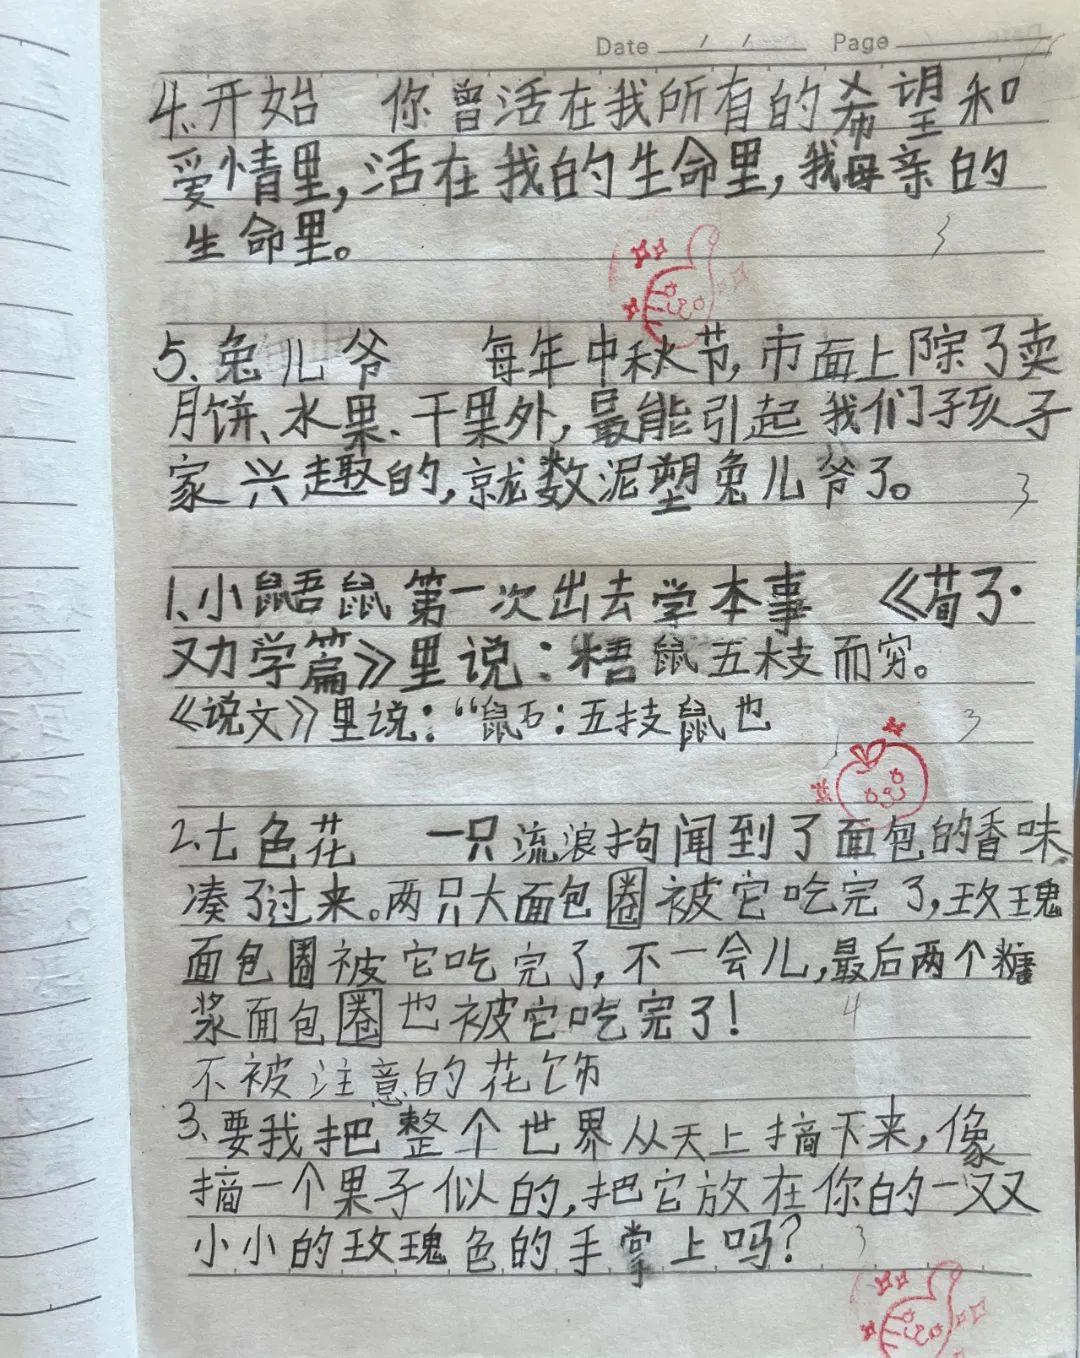 Date / / Page
4.开始 你曾活在我所有的希望和
爱情里,活在我的生命里,我母亲的
生命里。
3
5.兔儿爷 每年中秋节,市面上除了卖
月饼、水果、干果外,最能引起我们孩子
家兴趣的,就数泥塑兔儿爷了。
3
1、小鼯鼠第一次出去学本事 《荀子·
劝学篇》里说:梧鼠五枝而穷。
《说文》里说:“鼫:五技鼠也
3
2.七色花 一只流浪狗闻到了面包的香味,
凑了过来。两只大面包圈被它吃完了,玫瑰
面包圈被它吃完了,不一会儿,最后两个糖
浆面包圈也被它吃完了!
4
不被注意的花饰
3.要我把整个世界从天上摘下来,像
摘一个果子似的,把它放在你的一双
小小的玫瑰色的手掌上吗?
3